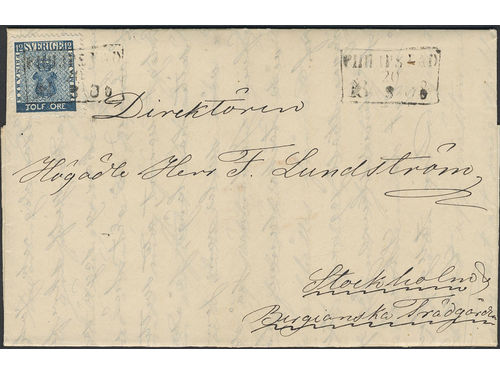 12 SVERIGE 12
TOLF ÖRE
20
Direktören
Högädle Herr F. Lundström
Stockholm
Bergianska Trädgården